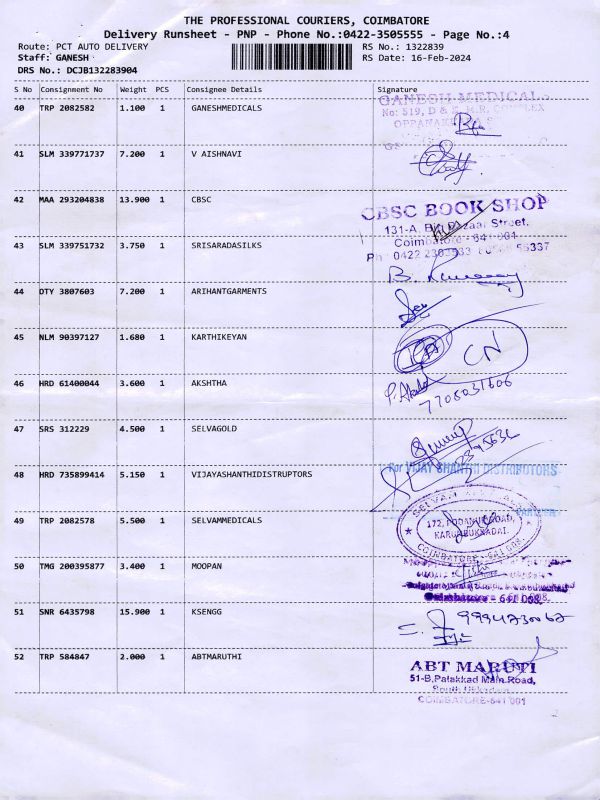 THE PROFESSIONAL COURIERS, COIMBATORE
Delivery Runsheet - PNP - Phone No.:0422-3505555 - Page No.:4
Route: PCT AUTO DELIVERY RS No.: 1322839
Staff: GANESH RS Date: 16-Feb-2024
DRS No.: DCJB132283904
S No Consignment No Weight PCS Consignee Details Signature
40 TRP 2082582 1.100 1 GANESHMEDICALS
GANESH MEDICALS
No: 519, D & COMPLEX
41 SLM 339771737 7.200 1 V AISHNAVI
42 MAA 293204838 13.900 1 CBSC
CBSC BOOK SHOP
131-A, Street,
Coimbatore - 641 001
Ph: 0422 55337
43 SLM 339751732 3.750 1 SRISARADASILKS
44 DTY 3807603 7.200 1 ARIHANTGARMENTS
45 NLM 90397127 1.680 1 KARTHIKEYAN
CN
46 HRD 61400044 3.600 1 AKSHTHA
7708031606
47 SRS 312229 4.500 1 SELVAGOLD
48 HRD 735899414 5.150 1 VIJAYASHANTHIDISTRUPTORS
For VIJAY SHANTHI DISTRIBUTORS
49 TRP 2082578 5.500 1 SELVAMMEDICALS
SELVAM
172, ROAD,
KARUMBUKKADAI
COIMBATORE - 641 008.
50 TMG 200395877 3.400 1 MOOPAN
Coimbatore - 641 008.
51 SNR 6435798 15.900 1 KSENGG
52 TRP 584847 2.000 1 ABTMARUTHI
ABT MARUTI
51-B, Palakkad Main Road,
South Ukkadam
COIMBATORE-641 001